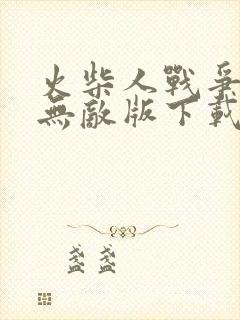 火柴人戰爭
無敵版下載
盞盞